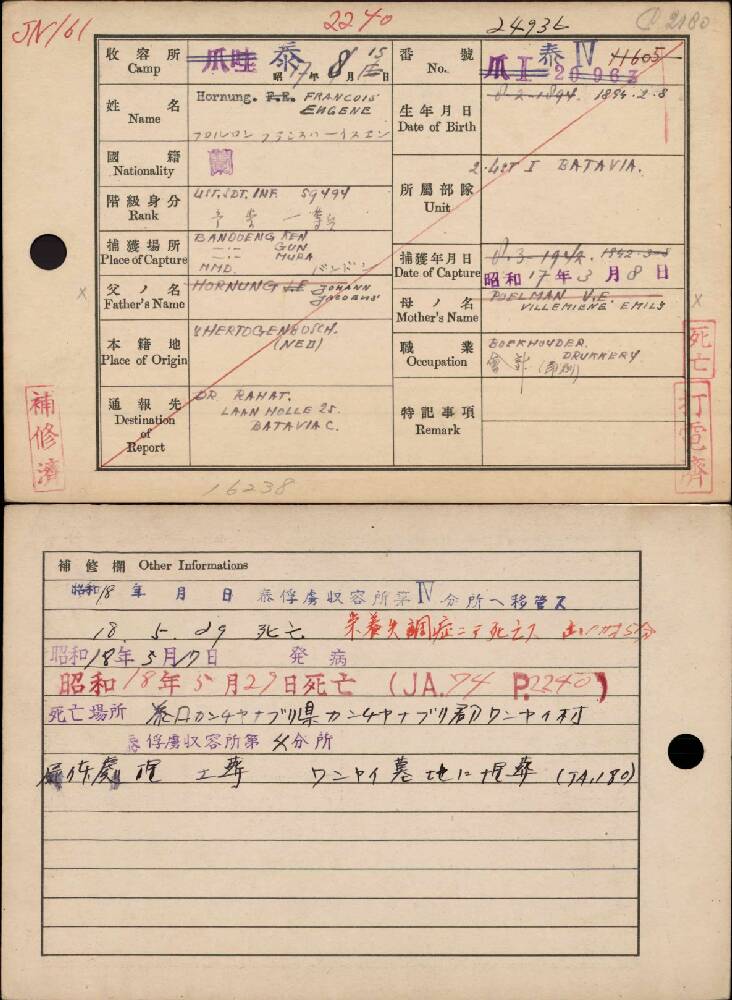 JN/61
2240
24936
2180
收容所
Camp
爪哇 泰
昭17年8月15日
番號
No.
爪I 20963
泰 IV 11605
姓名
Name
Hornung. F.E. FRANCOIS
EUGENE
生年月日
Date of Birth
8-2-1894. 1894-2-8
國籍
Nationality
蘭
所屬部隊
Unit
BATAVIA.
階級身分
Rank
LST.SDT.INF. 59494
捕獲場所
Place of Capture
BANDOENG KEN
—·— GUN
—·— MURA
MMD. バンドン
捕獲年月日
Date of Capture
8.3-1942. 1942-3-8
昭和17年3月8日
父ノ名
Father's Name
HORNUNG J.E JOHANN
JACOBUS
母ノ名
Mother's Name
POELMAN V.E.
VILLEMIENE EMILY
本籍地
Place of Origin
'S HERTOGENBOSCH.
(NED)
職業
Occupation
BOEKHOUDER.
DRUKKERY
會計 (印刷)
通報先
Destination
of
Report
DR RAHAT.
LAAN HOLLE 25.
BATAVIA C.
特記事項
Remark
補修濟
死亡
打電濟
16238
補修欄 Other Informations
昭和18年 月 日 泰俘虜収容所第IV分所ヘ移管ス
18.5.29 死亡 榮養失調症ニテ死亡ス
昭和18年5月17日 発病
昭和18年5月29日死亡 (JA.74 P.2240)
死亡場所 泰国カンチャナブリ県カンチャナブリ郡ワンヤイ村
泰俘虜収容所第4分所
ワンヤイ墓地に埋葬 (JA.180)